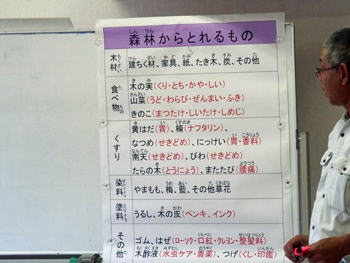 森林からとれるもの
木材 建ちく材、家具、紙、たき木、炭、その他
食べ物 木の実(くり・とち・かや・しい)
山菜(うど・わらび・ぜんまい・ふき)
きのこ(まつたけ・しいたけ・しめじ)
くすり 黄はだ(胃)、楠(ナフタリン)、
なつめ(せきどめ)、にっけい(胃・香料)
南天(せきどめ)、びわ(せきどめ)
たらの木(とうにょう)、またたび(腰痛)
染料 やまもも、梅、藍、その他草花
塗料 うるし、木の皮(ペンキ、インク)
その他 ゴム、はぜ(ローソク・口紅・クレヨン・整髪料)
木酢液(水虫ケア・農薬)、つげ(くし・印鑑)